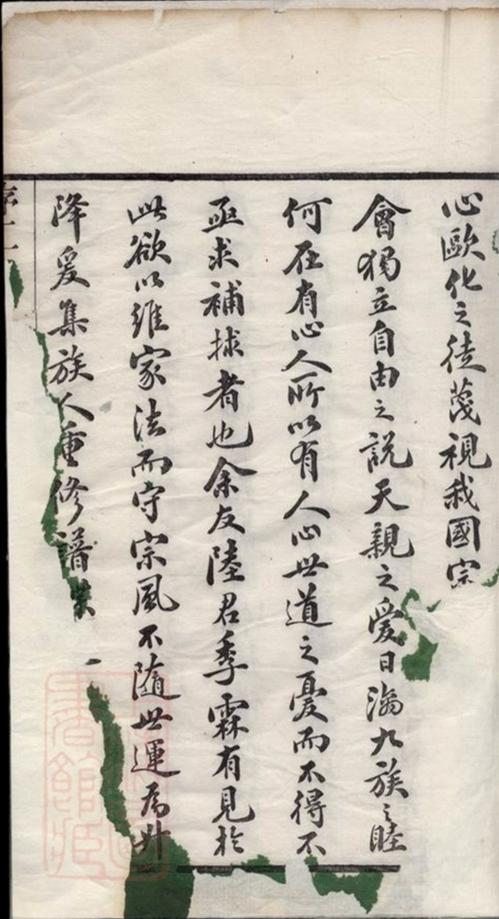 心歐化之徒蔑視我國宗
會獨立自由之說天親之愛日漓九族之睦
何在有心人所以有人心世道之憂而不得不
亟求補捄者也余友陸君季霖有見於
此欲以維家法而守宗風不隨世運為升
降爰集族人重修譜